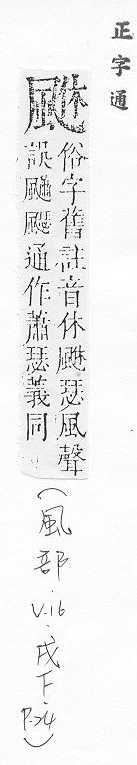 正字通
俗字舊註音休瑟風聲
誤通作蕭瑟義同
(風部.V.16.戌下.P.24)